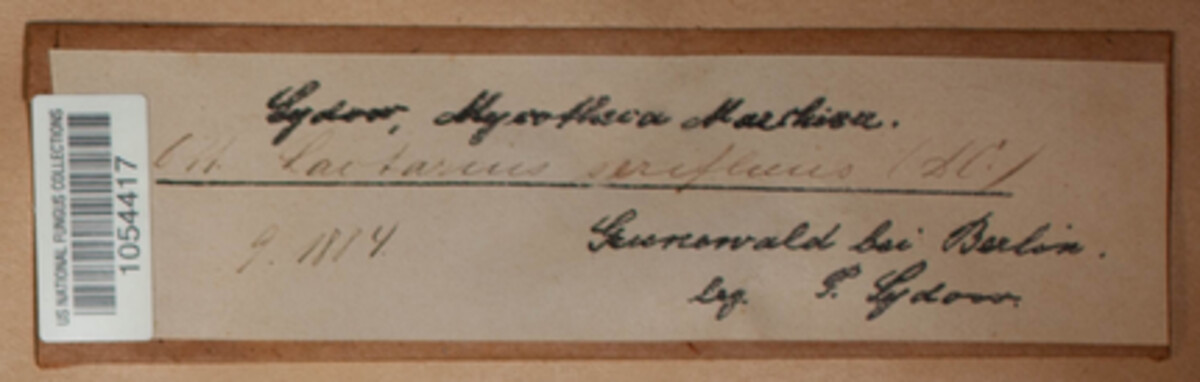 US NATIONAL FUNGUS COLLECTIONS
1054417
Sydow, Mycotheca Marchica.
Lactarius serifluus (DC.)
9. 1884.
Grunewald bei Berlin.
leg. P. Sydow.